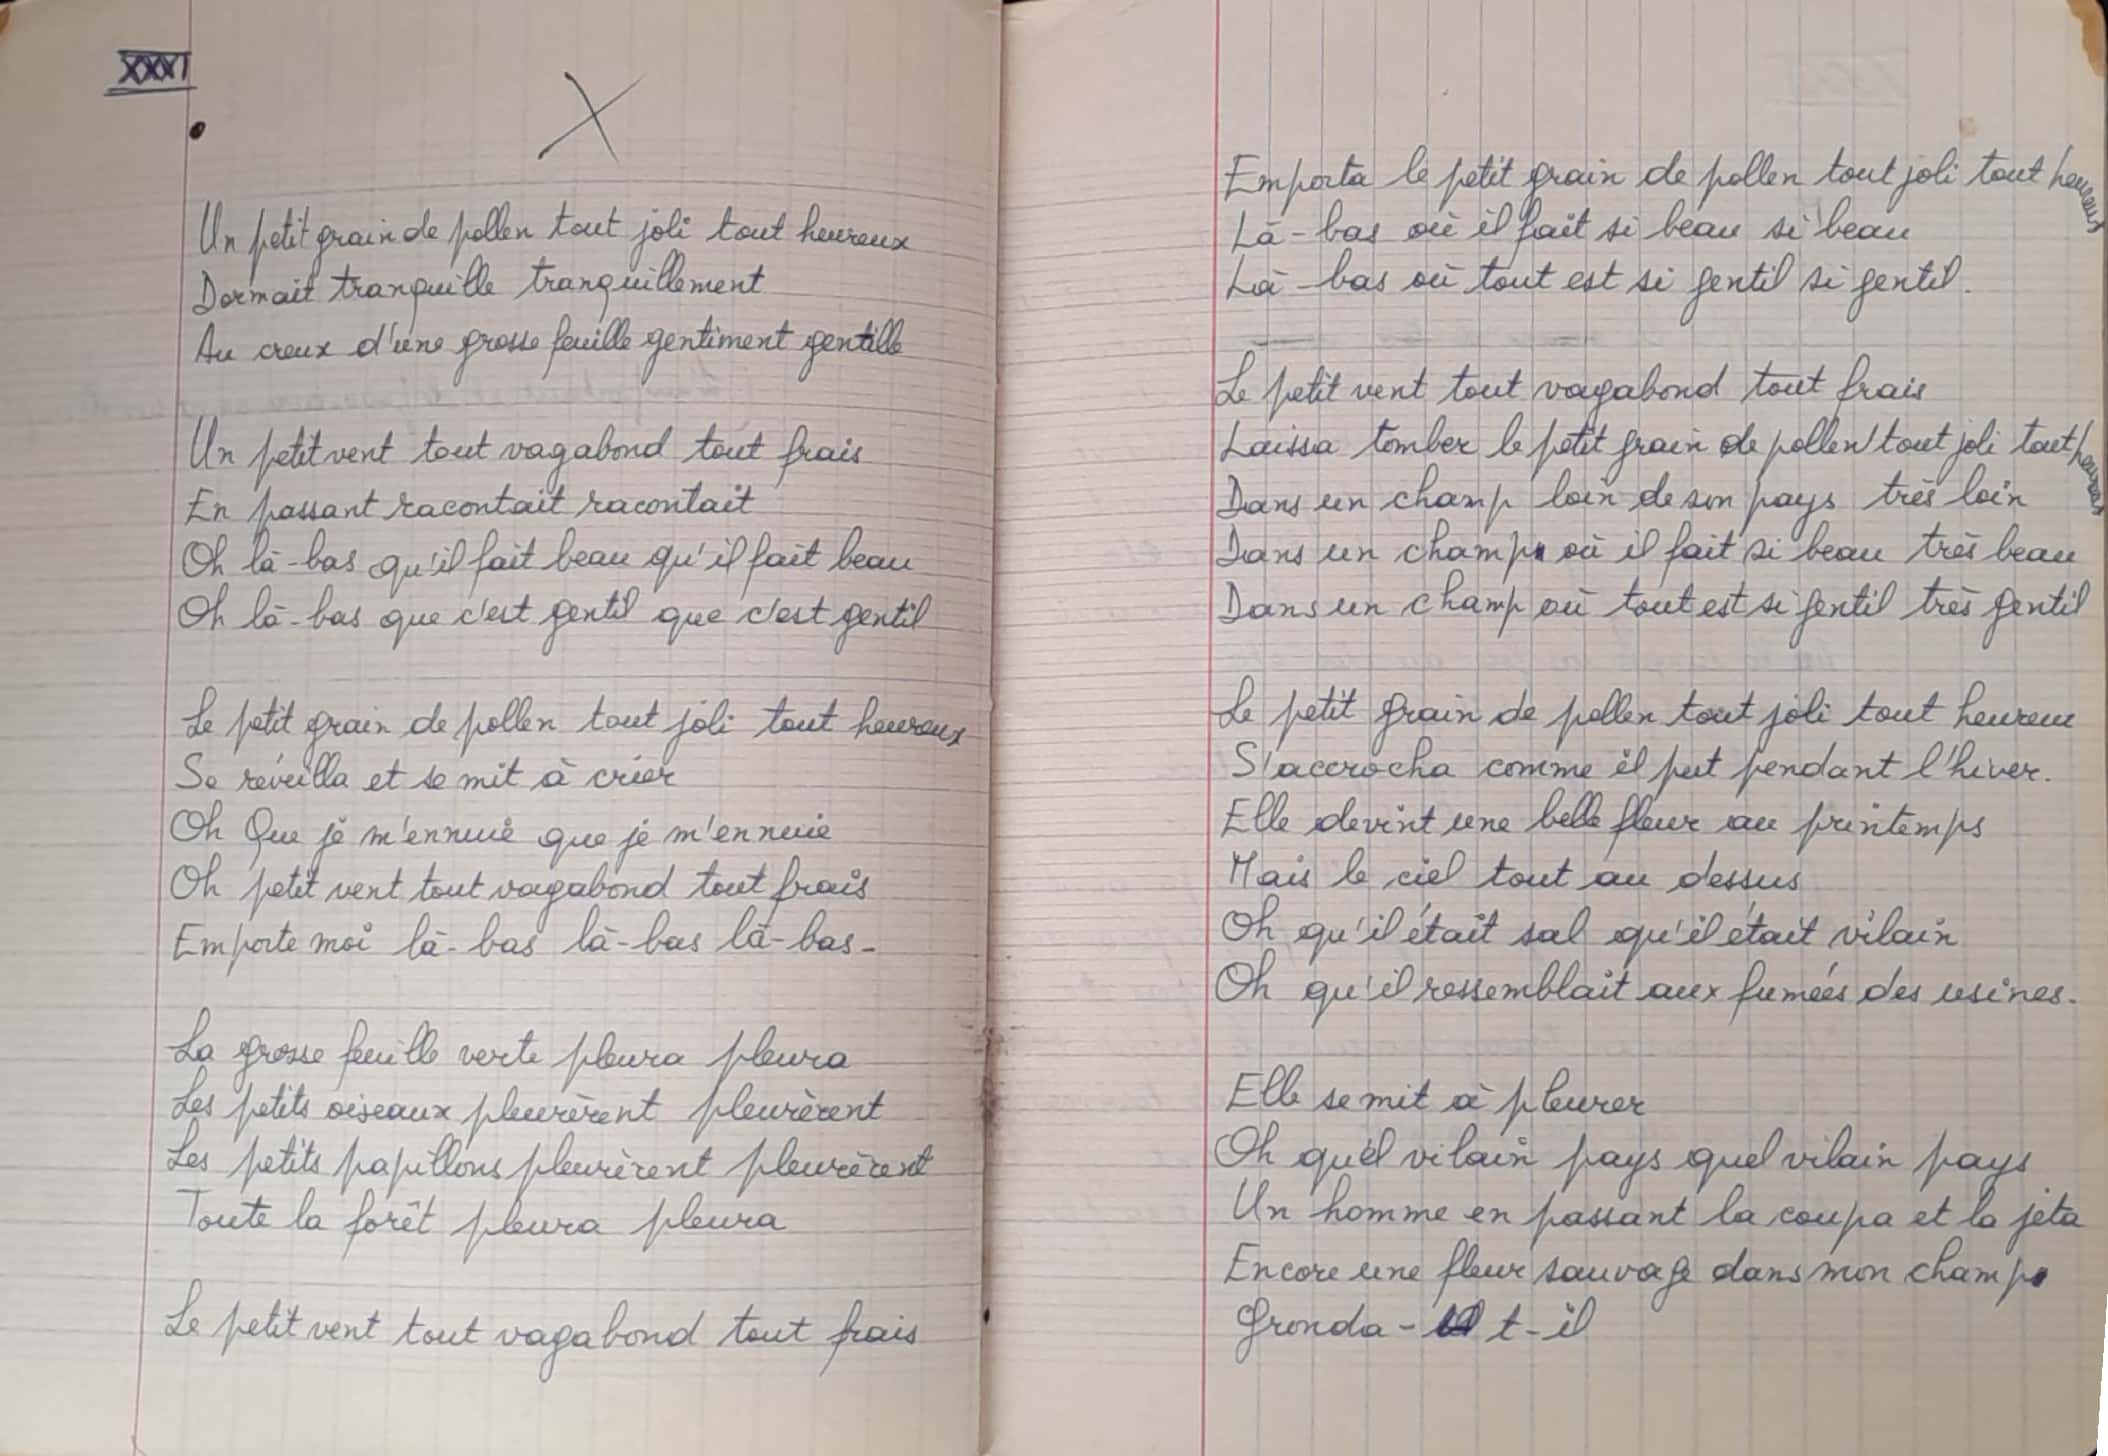 XXXVI
Un petit grain de pollen tout joli tout heureux
Dormait tranquille tranquillement
Au creux d'une grosse feuille gentiment gentille
Un petit vent tout vagabond tout frais
En passant racontait racontait
Oh là-bas qu'il fait beau qu'il fait beau
Oh là-bas que c'est gentil que c'est gentil
Le petit grain de pollen tout joli tout heureux
Se réveilla et se mit à crier
Oh Que je m'ennuie que je m'ennuie
Oh petit vent tout vagabond tout frais
Emporte moi là-bas là-bas là-bas-
La grosse feuille verte pleura pleura
Les petits oiseaux pleurèrent pleurèrent
Les petits papillons pleurèrent pleurèrent
Toute la forêt pleura pleura
Le petit vent tout vagabond tout frais
Emporta le petit grain de pollen tout joli tout heureux
Là-bas où il fait si beau si beau
Là-bas où tout est si gentil si gentil.
Le petit vent tout vagabond tout frais
Laissa tomber le petit grain de pollen tout joli tout heureux
Dans un champ loin de son pays très loin
Dans un champ où il fait si beau très beau
Dans un champ où tout est si gentil très gentil
Le petit grain de pollen tout joli tout heureux
S'accrocha comme il put pendant l'hiver.
Elle devint une belle fleur au printemps
Mais le ciel tout au dessus
Oh qu'il était sal qu'il était vilain
Oh qu'il ressemblait aux fumées des usines.
Elle se mit à pleurer
Oh quel vilain pays quel vilain pays
Un homme en passant la coupa et la jeta
Encore une fleur sauvage dans mon champ
Gronda - t-il